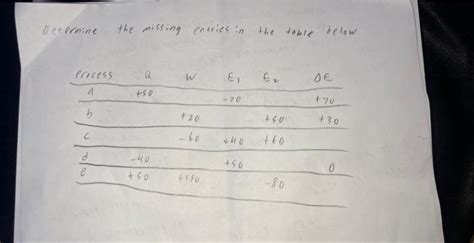 Determine the missing entries in the table below
Process Q W E₁ E₂ ΔE
a +50 -20 +70
b +20 +50 +30
c -60 +40 +60
d -40 +50 0
e +50 +150 -80